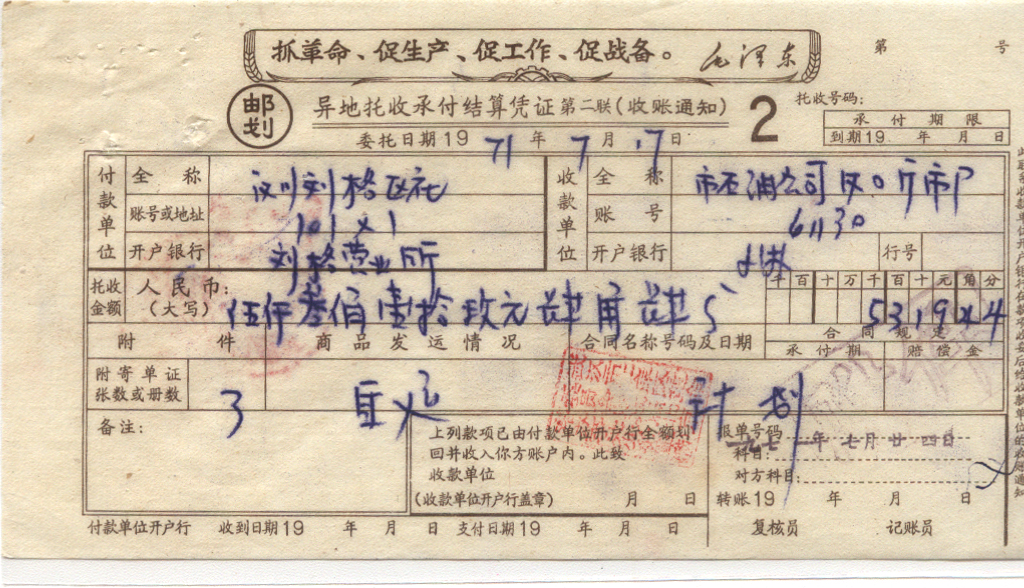 抓革命、促生产、促工作、促战备。 毛泽东
第 号
邮划
异地托收承付结算凭证 第二联(收账通知) 2
托收号码:
承付期限
到期19 年 月 日
委托日期19 71 年 7 月 17 日
付款单位
全称
汉川刘格区社
账号或地址
101×1
开户银行
刘格营业所
收款单位
全称
市石油公司
账号
61130
开户银行
行号
托收金额
人民币:
(大写)
伍仟叁佰壹拾玖元肆角肆分
千百十万千百十元角分
5 3 1 9 4 4
附件
商品发运情况
合同名称号码及日期
合同规定
承付期
赔偿金
附寄单证张数或册数
3
自火
计划
备注:
上列款项已由付款单位开户行全额划
回并收入你方账户内。此致
收款单位
(收款单位开户行盖章) 月 日
报单号码
一九七一年七月廿四日
科目:
对方科目:
转账19 年 月 日
付款单位开户行 收到日期19 年 月 日 支付日期19 年 月 日
复核员 记账员